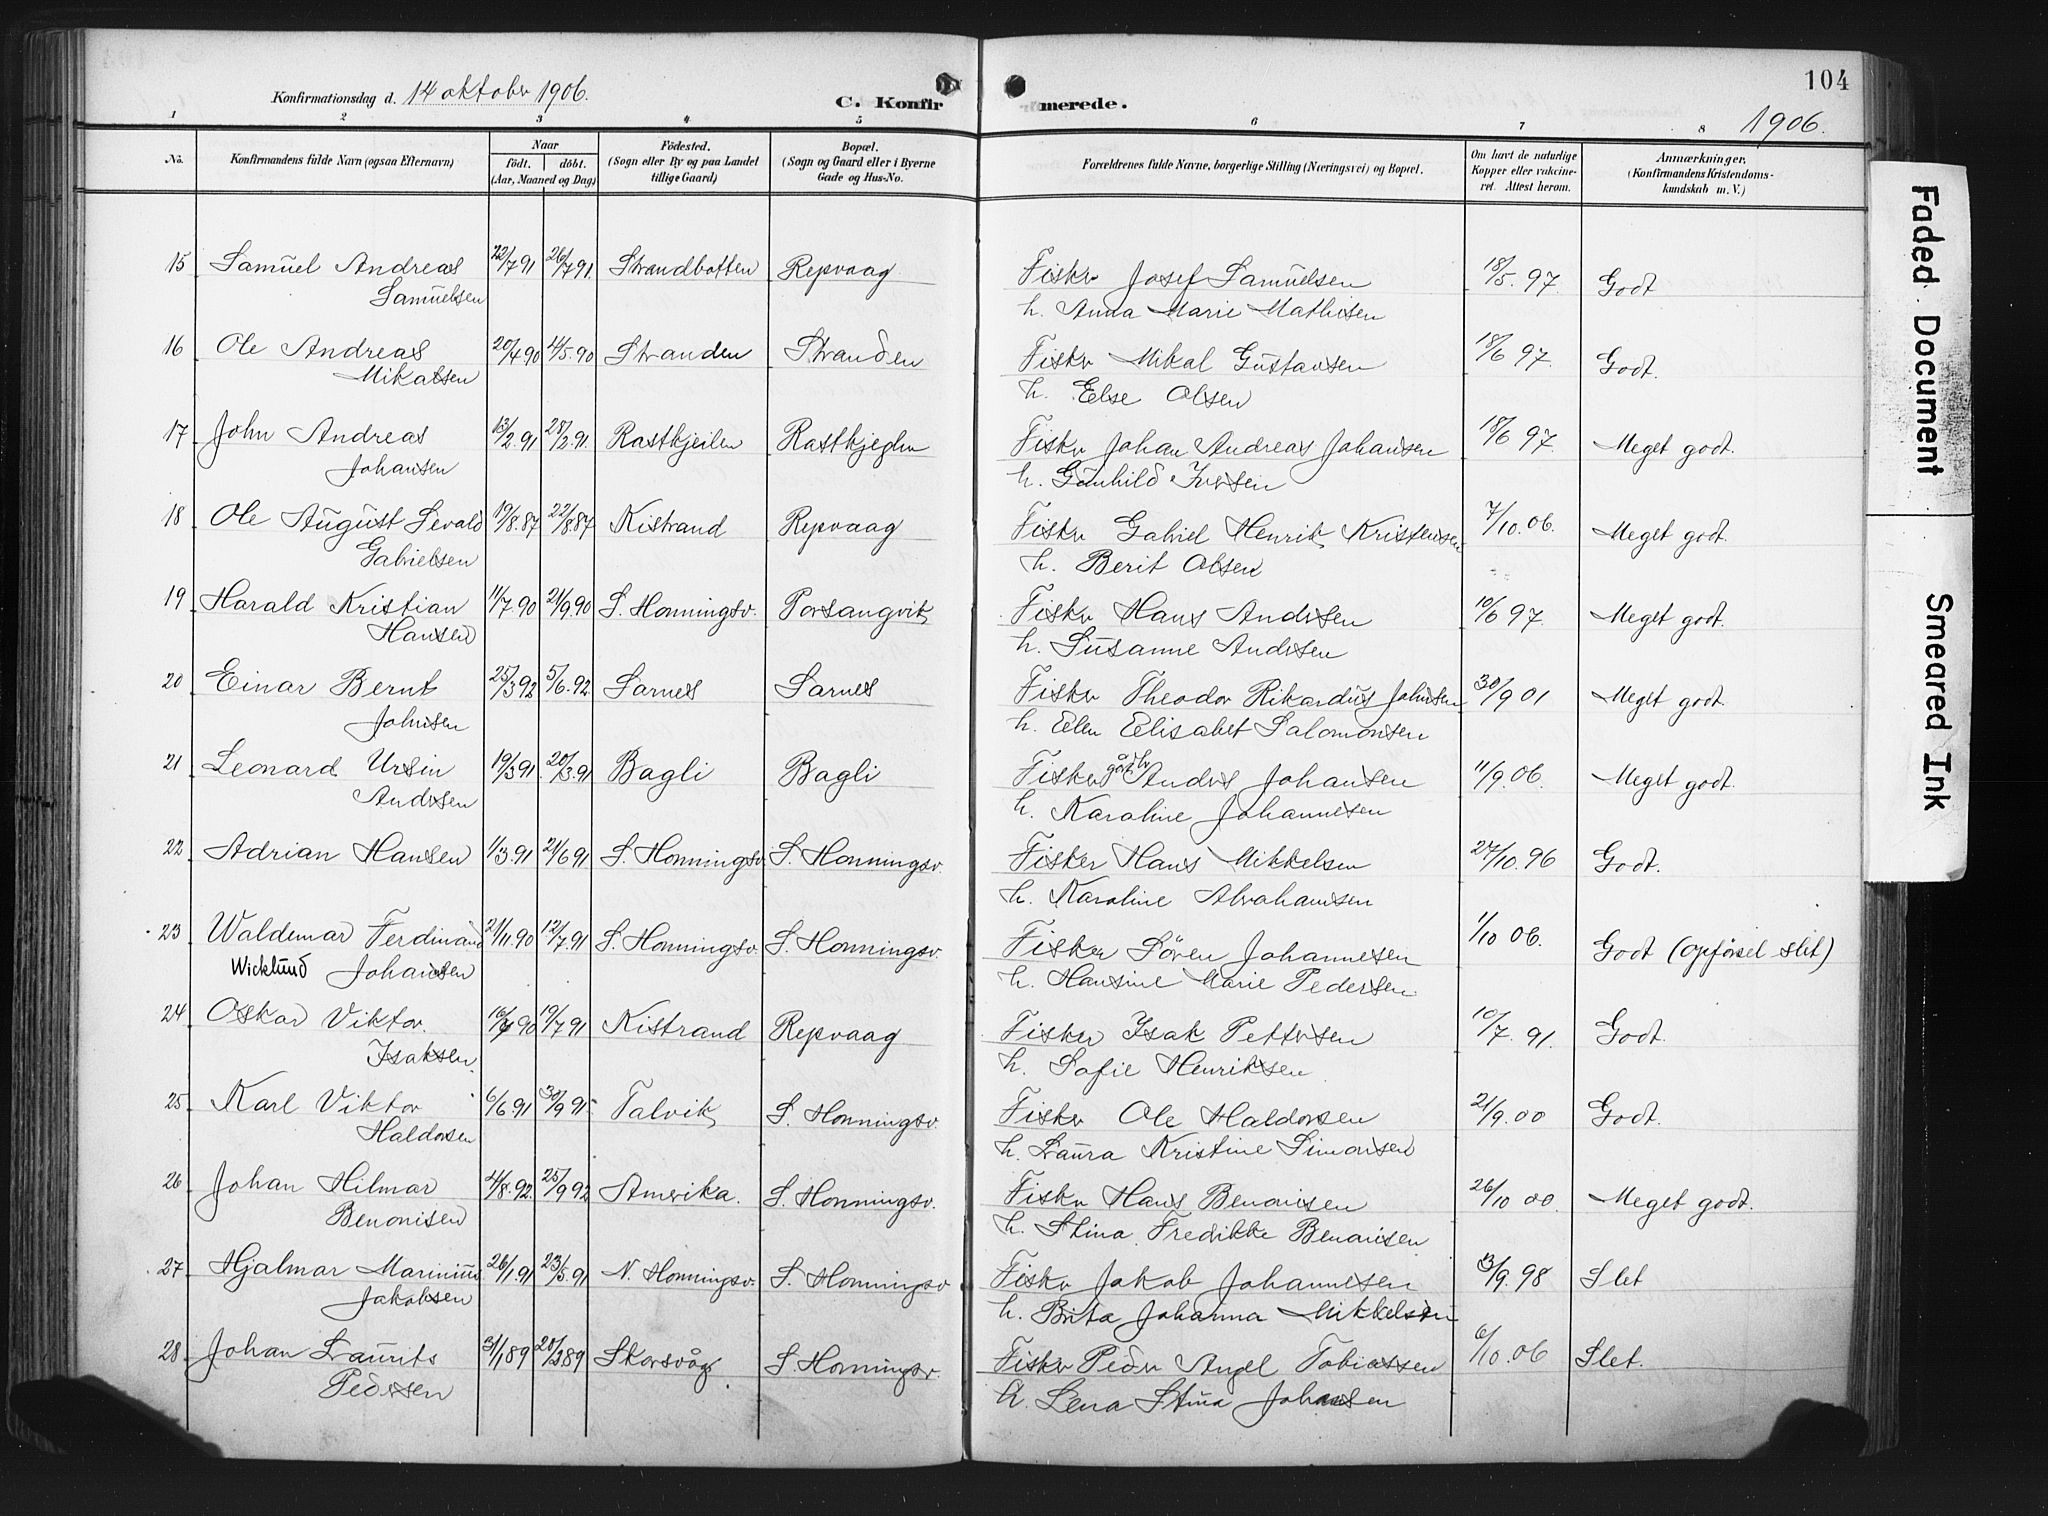 104
Konfirmationsdag d. 14 oktober 1906.
C. Konfirmerede.
1906.
1 2 3 4 5 6 7 8
No.
Konfirmandens fulde Navn (ogsaa Efternavn)
Naar
født. døbt.
(Aar, Maaned og Dag)
Fødested.
(Sogn eller By og paa Landet
tillige Gaard)
Bopæl.
(Sogn og Gaard eller i Byerne
Gade og Hus-No.
Forældrenes fulde Navne, borgerlige Stilling (Næringsvei) og Bopæl.
Om havt de naturlige
Kopper eller vakcine-
ret. Attest herom.
Anmærkninger.
(Konfirmandens Kristendoms-
kundskab m. V.)
15 Samuel Andreas 22/7 91 26/7 91. Strandbotten Repvaag Fisker Josef Samuelsen 18/5. 97. Godt
Samuelsen h. Anna Marie Mathisen
16 Ole Andreas 20/4 90 4/5. 90 Stranden Stranden Fisker Mikal Gustavsen 18/6 97. Godt.
Mikalsen h. Else Olsen
17 John Andreas 13/2. 91 28/2 91. Rastkjeilen Rastkjeglen Fisker Johan Andreas Johansen 18/6 97. Meget godt.
Johansen h. Gunhild Iversen
18 Ole August Sevald 19/8. 87 22/8 87. Kistrand Repvaag Fisker Gabriel Henrik Kristensen 7/10. 06. Meget godt.
Gabrielsen h. Berit Olsen
19 Harald Kristian 11/7. 90 21/9. 90 S. Honningsv. Porsangvik Fisker Hans Andersen 10/6 97. Meget godt.
Hansen h. Susanne Andersen
20 Einar Bernt 25/3 92 5/6. 92 Sarnes Sarnes Fisker Theodor Rikardus Johnsen 30/9 01 Meget godt.
Johnsen h. Elen Elisabet Salomonsen
21 Leonard Ursin 19/3 91 20/3. 91 Bagli Bagli Fisker Anders Johansen 11/9. 06. Meget godt.
Andersen h. Karoline Johannesen
22 Adrian Hansen 1/3. 91 21/6 91 S. Honningsv. S. Honningsv. Fisker Hans Mikkelsen 27/10. 96 Godt.
h. Karoline Abrahamsen
23 Waldemar Ferdinand 21/11. 90 12/7. 91 S. Honningsv. S. Honningsv. Fisker Søren Johannesen 1/10 06. Godt (opførsel slet)
Wicklund Johansen h. Hansine Marie Pedersen
24 Oskar Viktor 90 19/7 91 Kistrand Repvaag Fisker Isak Pettersen 10/7. 91. Godt.
Isaksen. h. Sofie Henriksen
25 Karl Viktor 6/6. 91 30/9 91 Talvik S. Honningsv. Fisker Ole Haldorsen 21/9. 00 Godt.
Haldorsen h. Laura Kristine Simonsen
26 Johan Hilmar 4/8. 92. 25/9 92 Amerika. S. Honningsv. Fisker Hans Benonisen 26/10 00. Meget godt.
Benonisen h. Stina Fredikke Benonisen
27 Hjalmar Marinius 26/1. 91 23/5. 91 N. Honningsv. S. Honningsv Fisker Jakob Johannesen 3/9. 98 Slet
Jakobsen h. Brita Johanna Mikkelsen
28 Johan Laurits 31/1 89 20/3 89 Skorsvåg S. Honningsv. Fisker Peder Angel Tobiassen 6/10. 06 Slet.
Pedersen h. Lena Stina Johansen
Faded Document
Smeared Ink